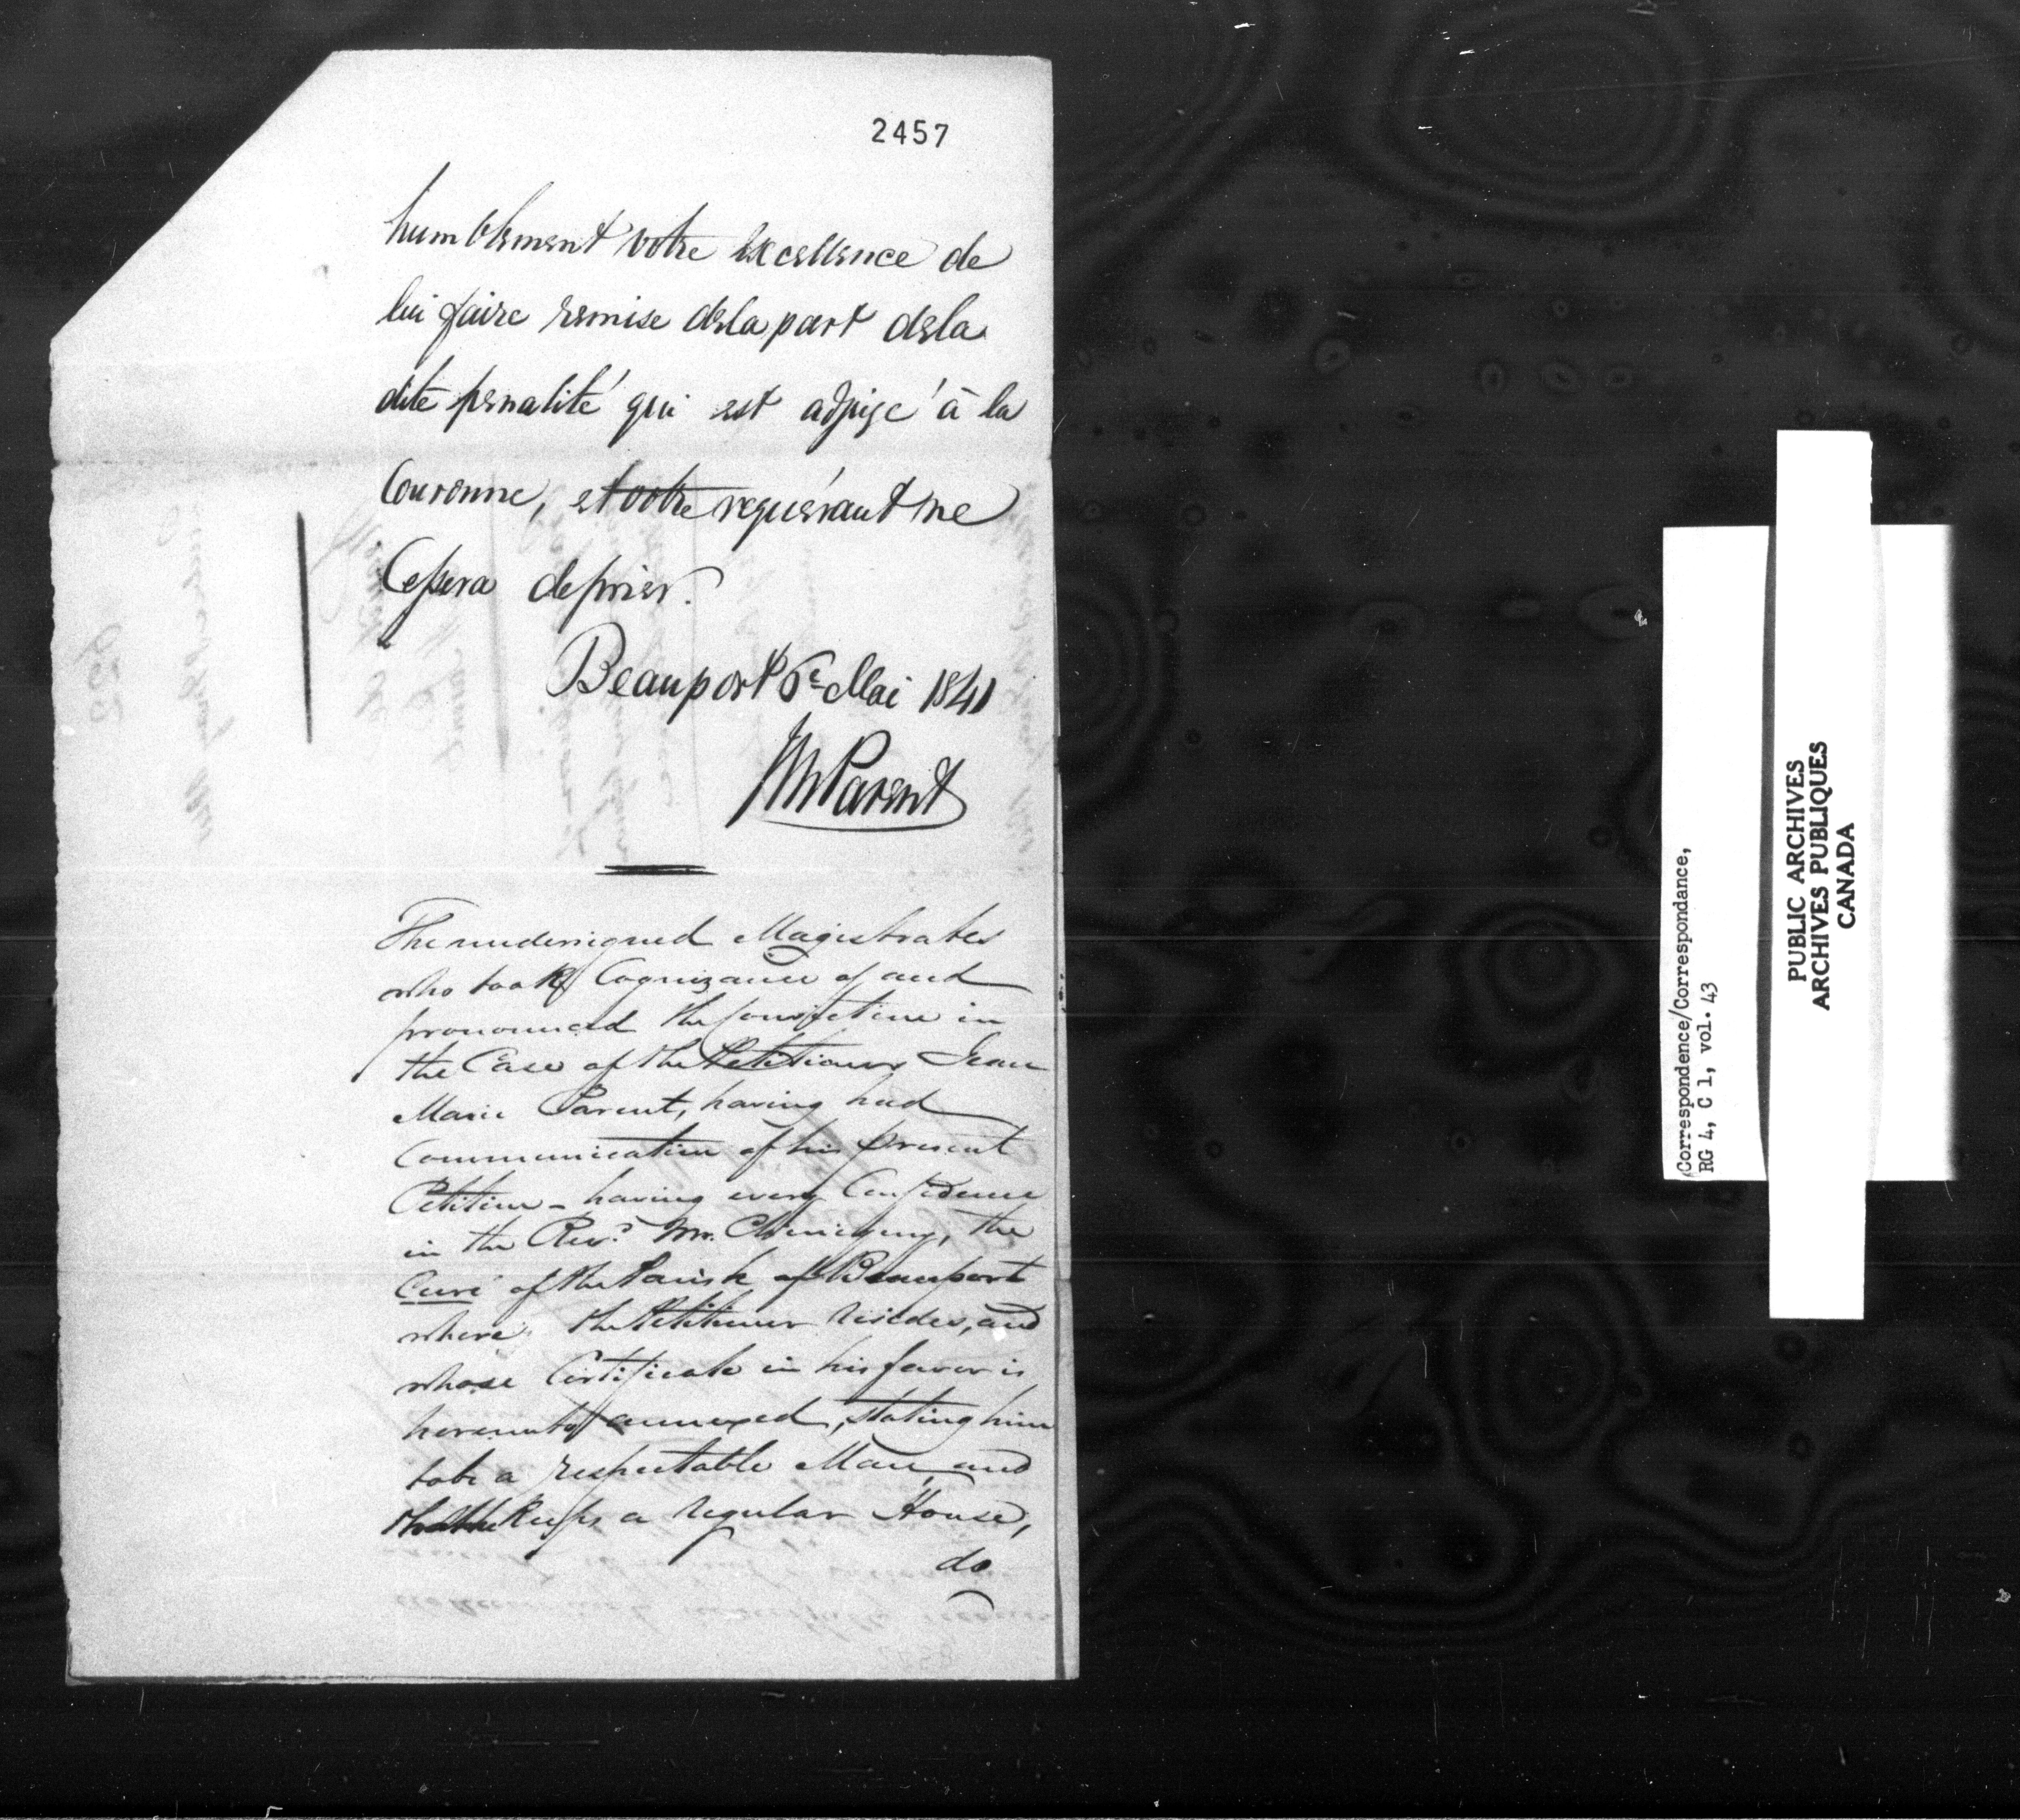 2457
humblement votre excellence de
lui faire remise dela part dela
dite penalité qui est adjugé à la
Couronne, et votre requérant ne
Cessera de prier.
Beauport 6e Mai 1841
JM Parent
The undersigned Magistrates
who took Cognizance of and
pronounced the Conviction in
the Case of the Petitioner Jean
Marie Parent, having had
Communication of his present
Petition - having every Confidence
in the Revd. Mr. Chiniquy, the
Curé of the Parish of Beauport
where the Petitioner resides, and
whose Certificate in his favor is
hereunto annexed, stating him
to be a respectable Man, and
that he keeps a regular House,
do
Correspondence/Correspondance,
RG 4, C 1, vol. 43
PUBLIC ARCHIVES
ARCHIVES PUBLIQUES
CANADA